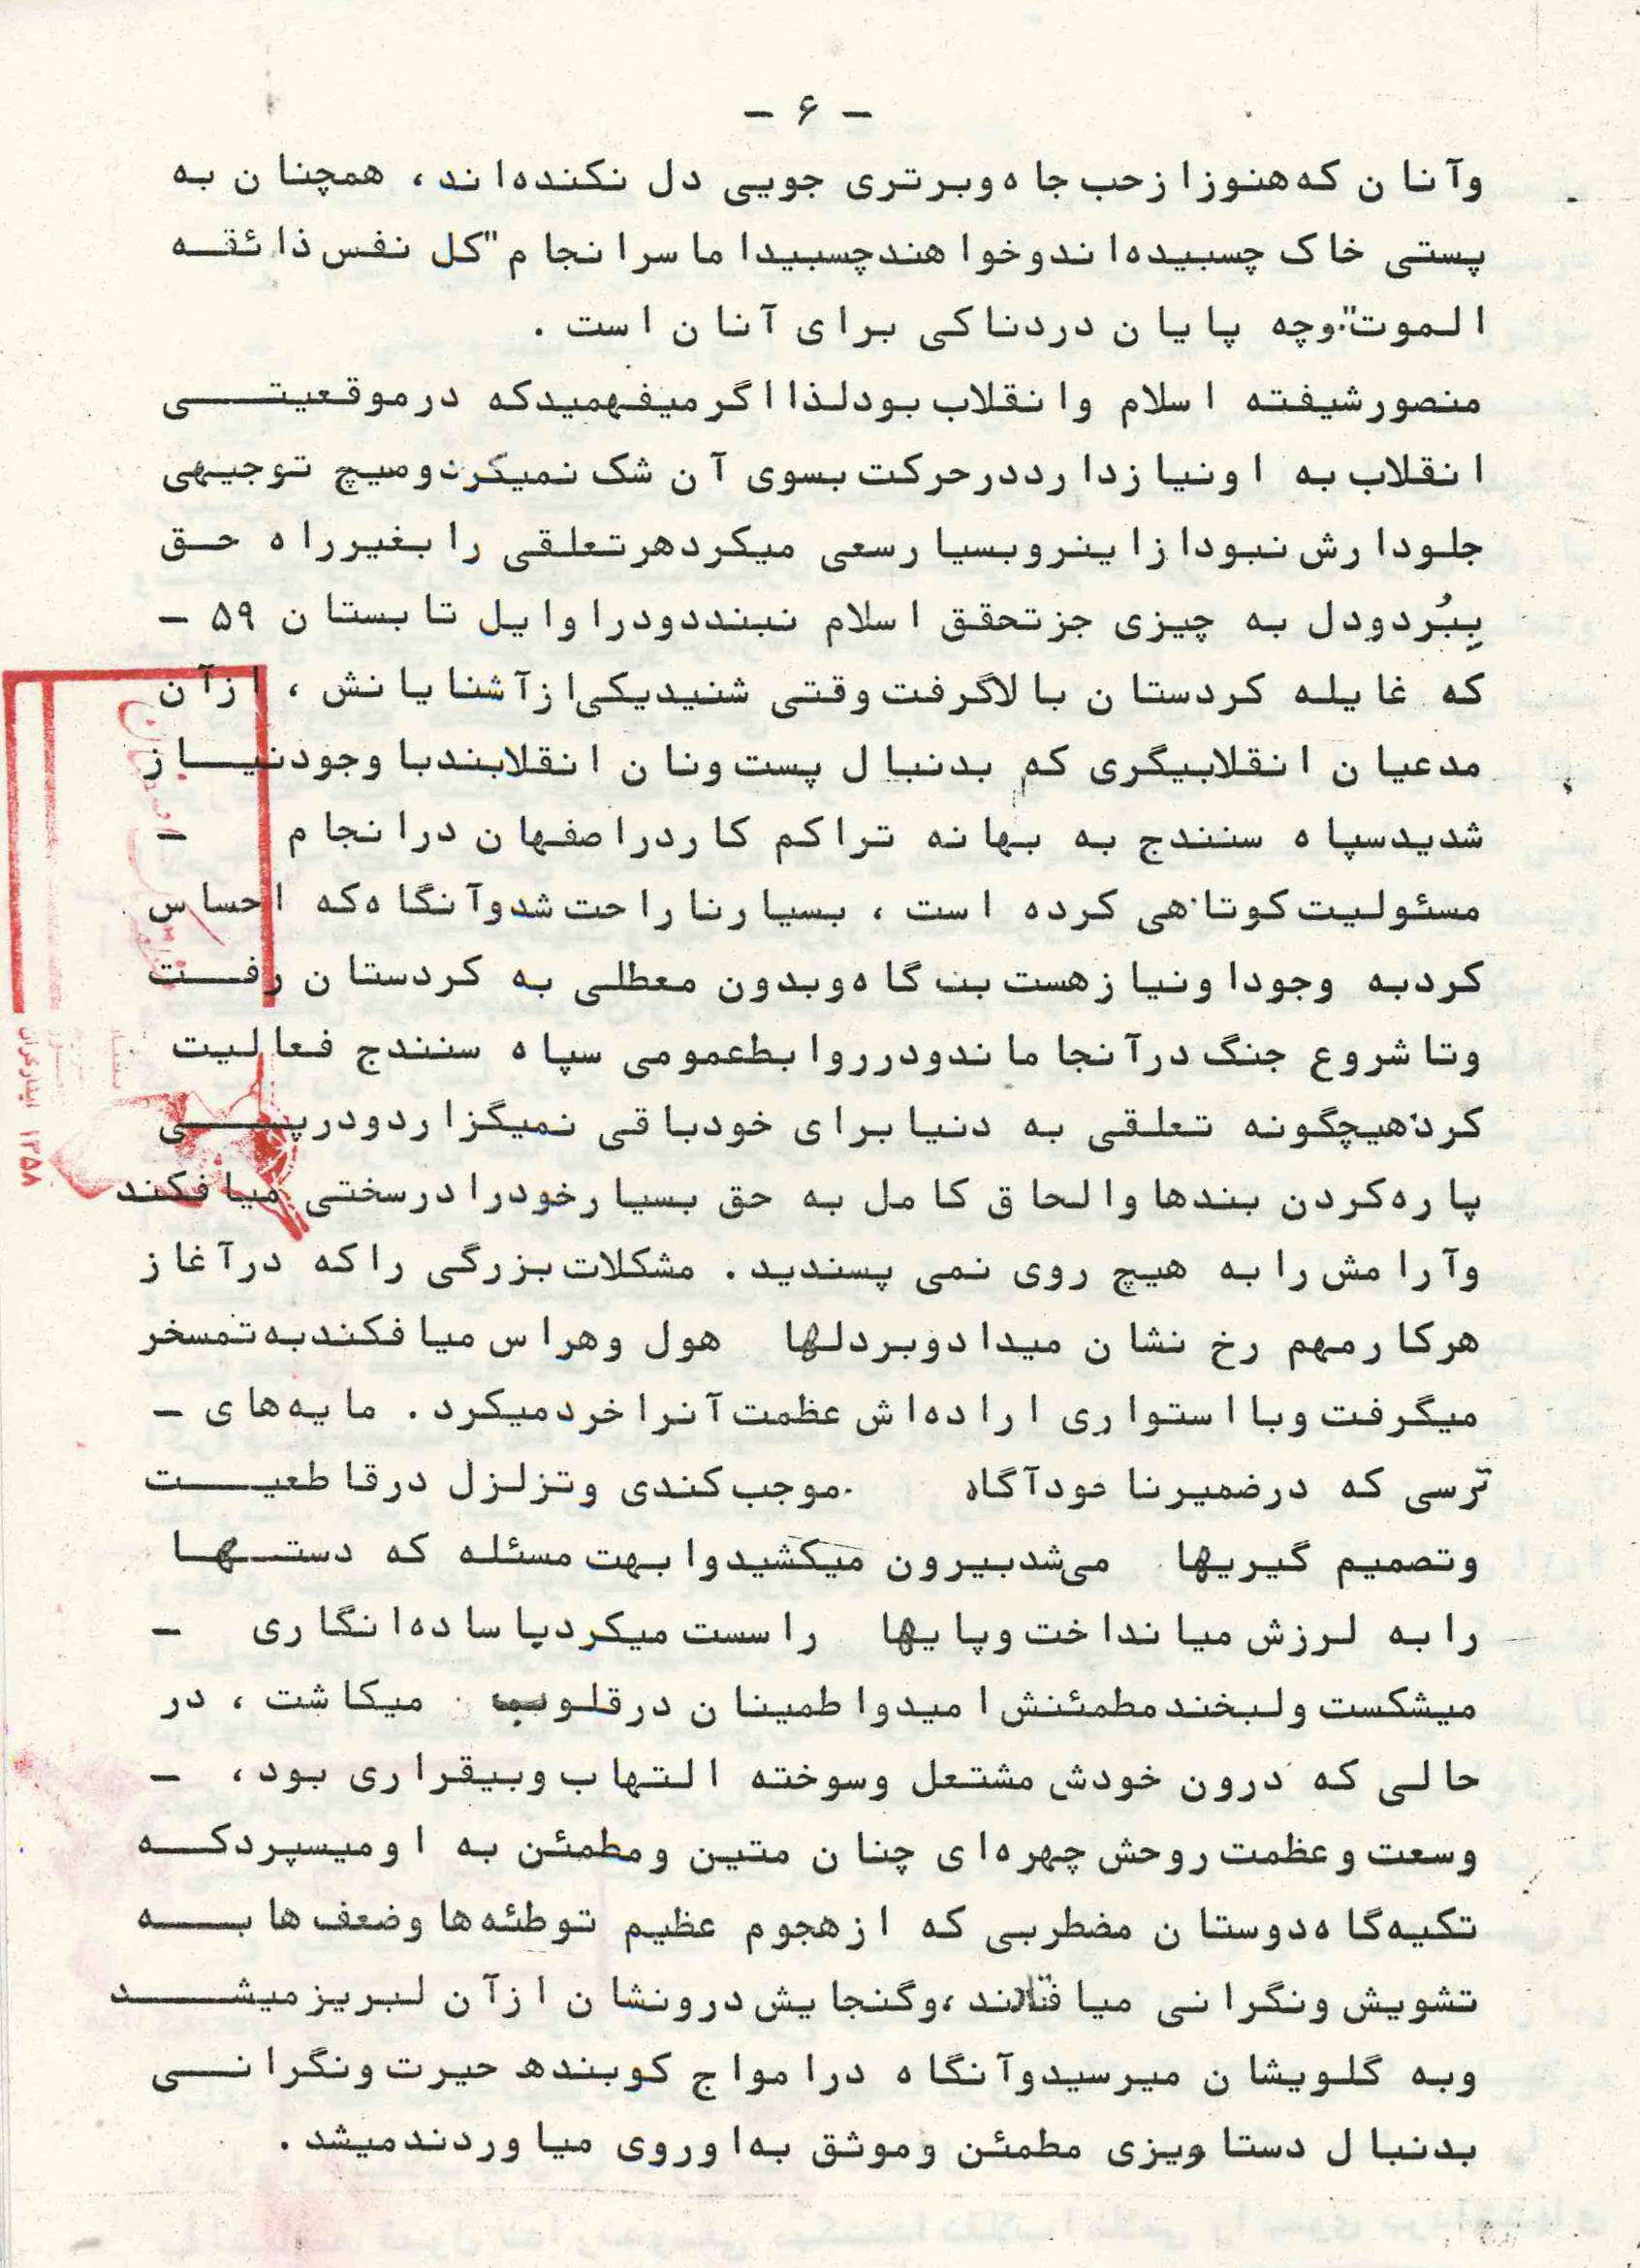 - ۶ -
وآنان که هنوز از حب جاه و برتری جویی دل نکنده‌اند، همچنان به
پستی خاک چسبیده‌اند و خواهند چسبید اما سرانجام "کل نفس ذائقه
الموت" و چه پایان دردناکی برای آنان است .
منصور شیفته اسلام و انقلاب بود لذا اگر میفهمید که در موقعیتی
انقلاب به او نیاز دارد در حرکت بسوی آن شک نمیکرد و هیچ توجیهی
جلودارش نبود از اینرو بسیار سعی میکرد هر تعلقی را بغیر راه حق
بِبُرد و دل به چیزی جز تحقق اسلام نبندد و در اوایل تابستان ۵۹ -
که غایله کردستان بالا گرفت وقتی شنید یکی از آشنایانش ، از آن
مدعیان انقلابیگری که بدنبال پست و نان انقلابند با وجود نیاز
شدید سپاه سنندج به بهانه تراکم کار در اصفهان در انجام -
مسئولیت کوتاهی کرده است ، بسیار ناراحت شد و آنگاه که احساس
کرد به وجود او نیاز هست بناگاه و بدون معطلی به کردستان رفت
و تا شروع جنگ در آنجا ماند و در روابط عمومی سپاه سنندج فعالیت
کرد هیچگونه تعلقی به دنیا برای خود باقی نمیگزارد و در پی
پاره کردن بندها و الحاق کامل به حق بسیار خود را در سختی میافکند
و آرامش را به هیچ روی نمی پسندید . مشکلات بزرگی را که در آغاز
هر کار مهم رخ نشان میداد و بر دلها هول و هراس میافکند به تمسخر
میگرفت و با استواری اراده‌اش عظمت آنرا خرد میکرد . مایه‌های -
ترسی که در ضمیر ناخودآگاه موجب کندی و تزلزل در قاطعیت
و تصمیم گیریها می‌شد بیرون میکشید و ابهت مسئله که دستها
را به لرزش میانداخت و پایها را سست میکرد با ساده‌انگاری -
میشکست و لبخند مطمئنش امید و اطمینان در قلوب میکاشت ، در
حالی که درون خودش مشتعل و سوخته التهاب و بیقراری بود ، -
وسعت و عظمت روحش چهره‌ای چنان متین و مطمئن به او میسپرد که
تکیه‌گاه دوستان مضطربی که از هجوم عظیم توطئه‌ها و ضعف‌ها به
تشویش و نگرانی میافتادند ، و گنجایش درونشان از آن لبریز میشد
و به گلویشان میرسید و آنگاه در امواج کوبنده حیرت و نگرانی
بدنبال دستاویزی مطمئن و موثق به‌او روی میاوردند میشد .
ایثارگران ۱۳۵۸